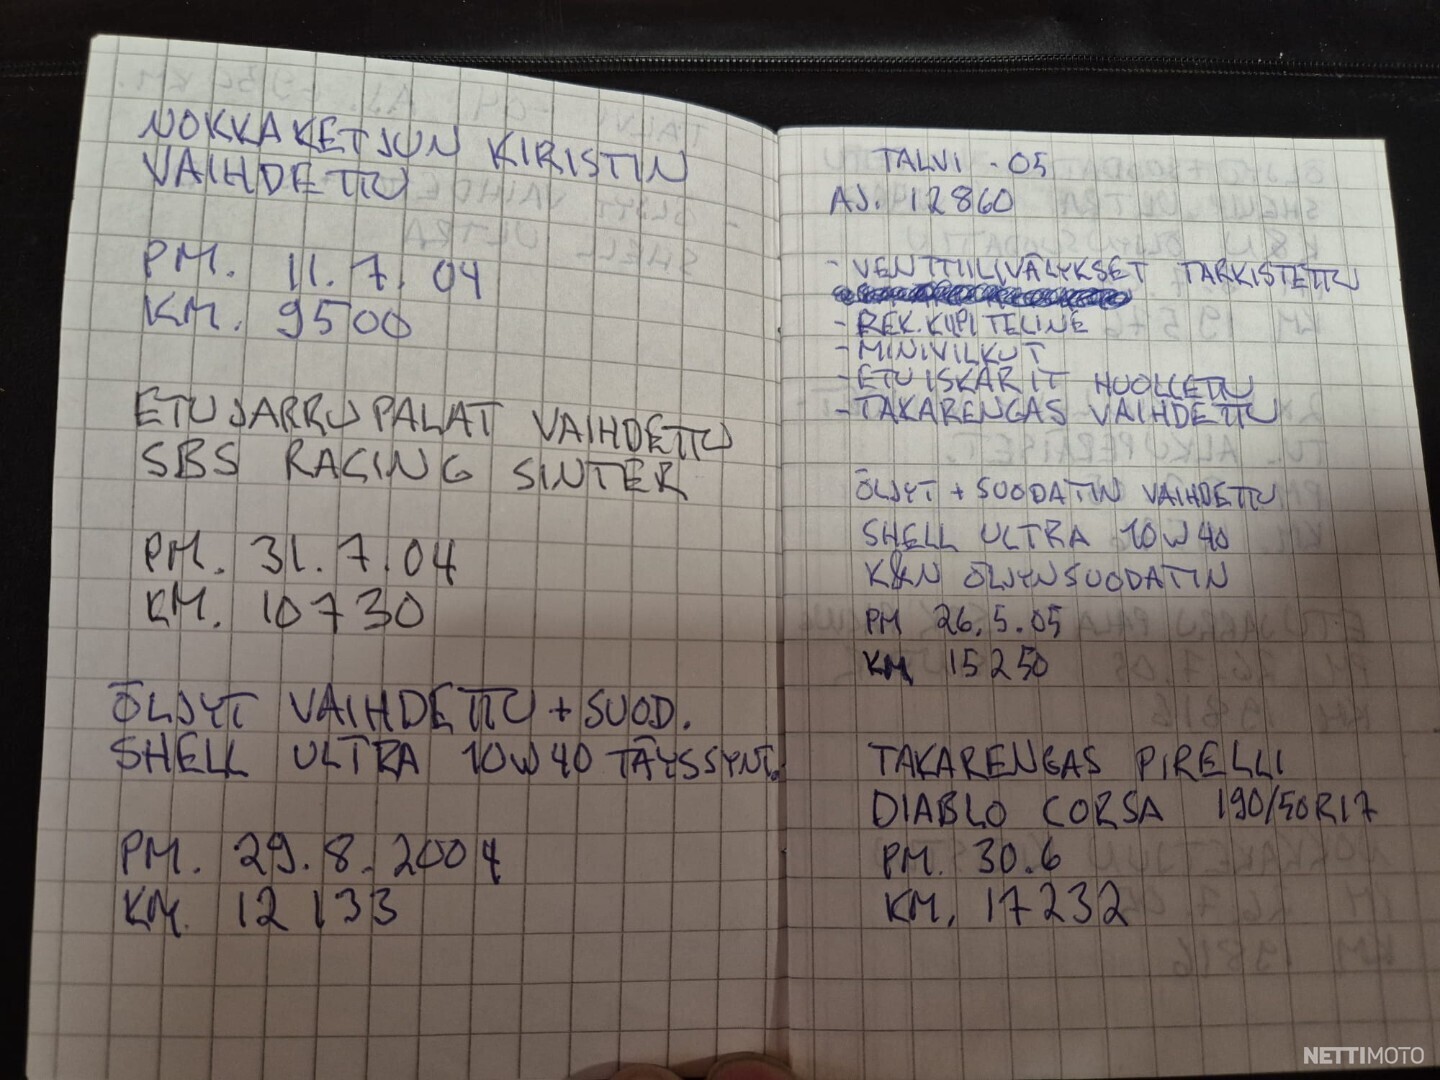 NOKKAKETJUN KIRISTIN
VAIHDETTU
PM. 11.7.04
KM. 9500
ETUJARRUPALAT VAIHDETTU
SBS RACING SINTER
PM. 31.7.04
KM. 10730
ÖLJYT VAIHDETTU + SUOD.
SHELL ULTRA 10W40 TÄYSSYNT.
PM. 29.8.2004
KM. 12133
TALVI -05
AJ. 12860
- VENTTIILIVÄLYKSET TARKISTETTU
- REK.KILPITELINE
- MINIVILKUT
- ETUISKARIT HUOLLETTU
- TAKARENGAS VAIHDETTU
ÖLJYT + SUODATIN VAIHDETTU
SHELL ULTRA 10W40
K&N ÖLJYNSUODATIN
PM 26.5.05
KM 15250
TAKARENGAS PIRELLI
DIABLO CORSA 190/50R17
PM. 30.6
KM. 17232
NETTIMOTO